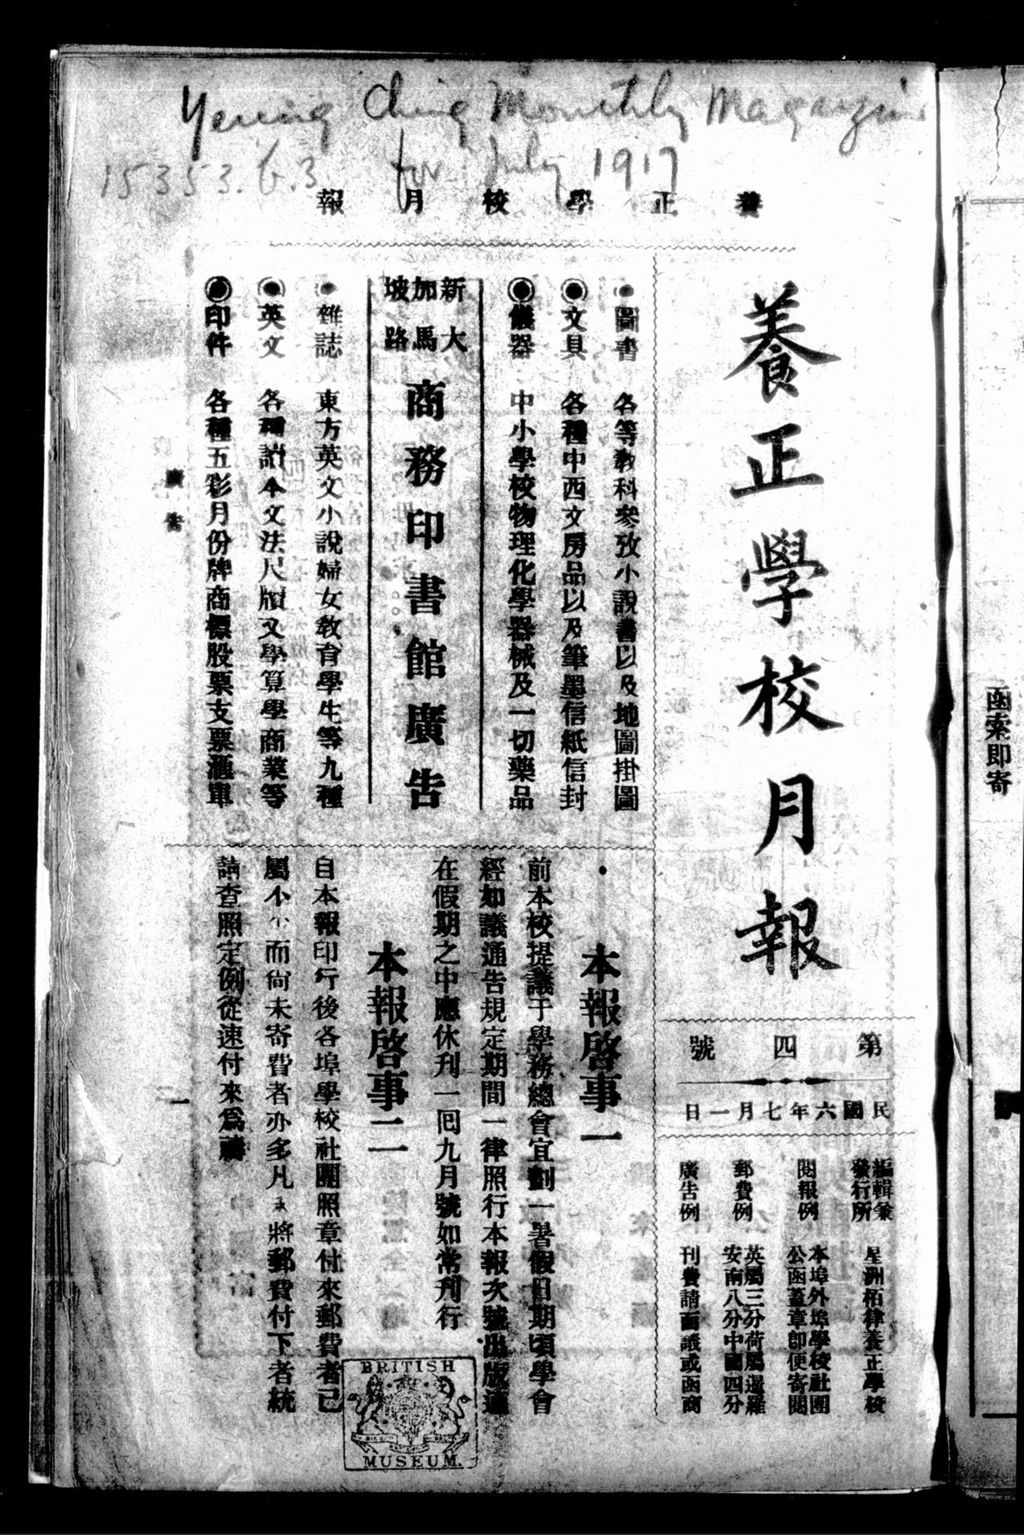 Yeung Ching Monthly Magazin
for July 1917
15353.b.3
報月校學正養
養正學校月報
第四號
民國六年七月一日
編輯兼發行所 星洲栢律養正學校
閱報例 本埠外埠學校社團公函蓋章即便寄閱
郵費例 英屬三分荷屬暹羅安南八分中國四分
廣告例 刊費請面議或函商
圖書 各等教科參攷小說書以及地圖掛圖
文具 各種中西文房品以及筆墨信紙信封
儀器 中小學校物理化學器械及一切藥品
新加坡大馬路
商務印書館廣告
雜誌 東方英文小說婦女教育學生等九種
英文 各種讀本文法尺牘文學算學商業等
印件 各種五彩月份牌商標股票支票滙單
廣告
本報啓事一
前本校提議于學務總會宜劃一暑假日期頃學會
經如議通告規定期間一律照行本報次號出版適
在假期之中應休刊一囘九月號如常刊行
本報啓事二
自本報印行後各埠學校社團照章付來郵費者已
屬不少而尙未寄費者亦多凡未將郵費付下者統
請查照定例從速付來爲禱
一
函索即寄
BRITISH
MUSEUM.